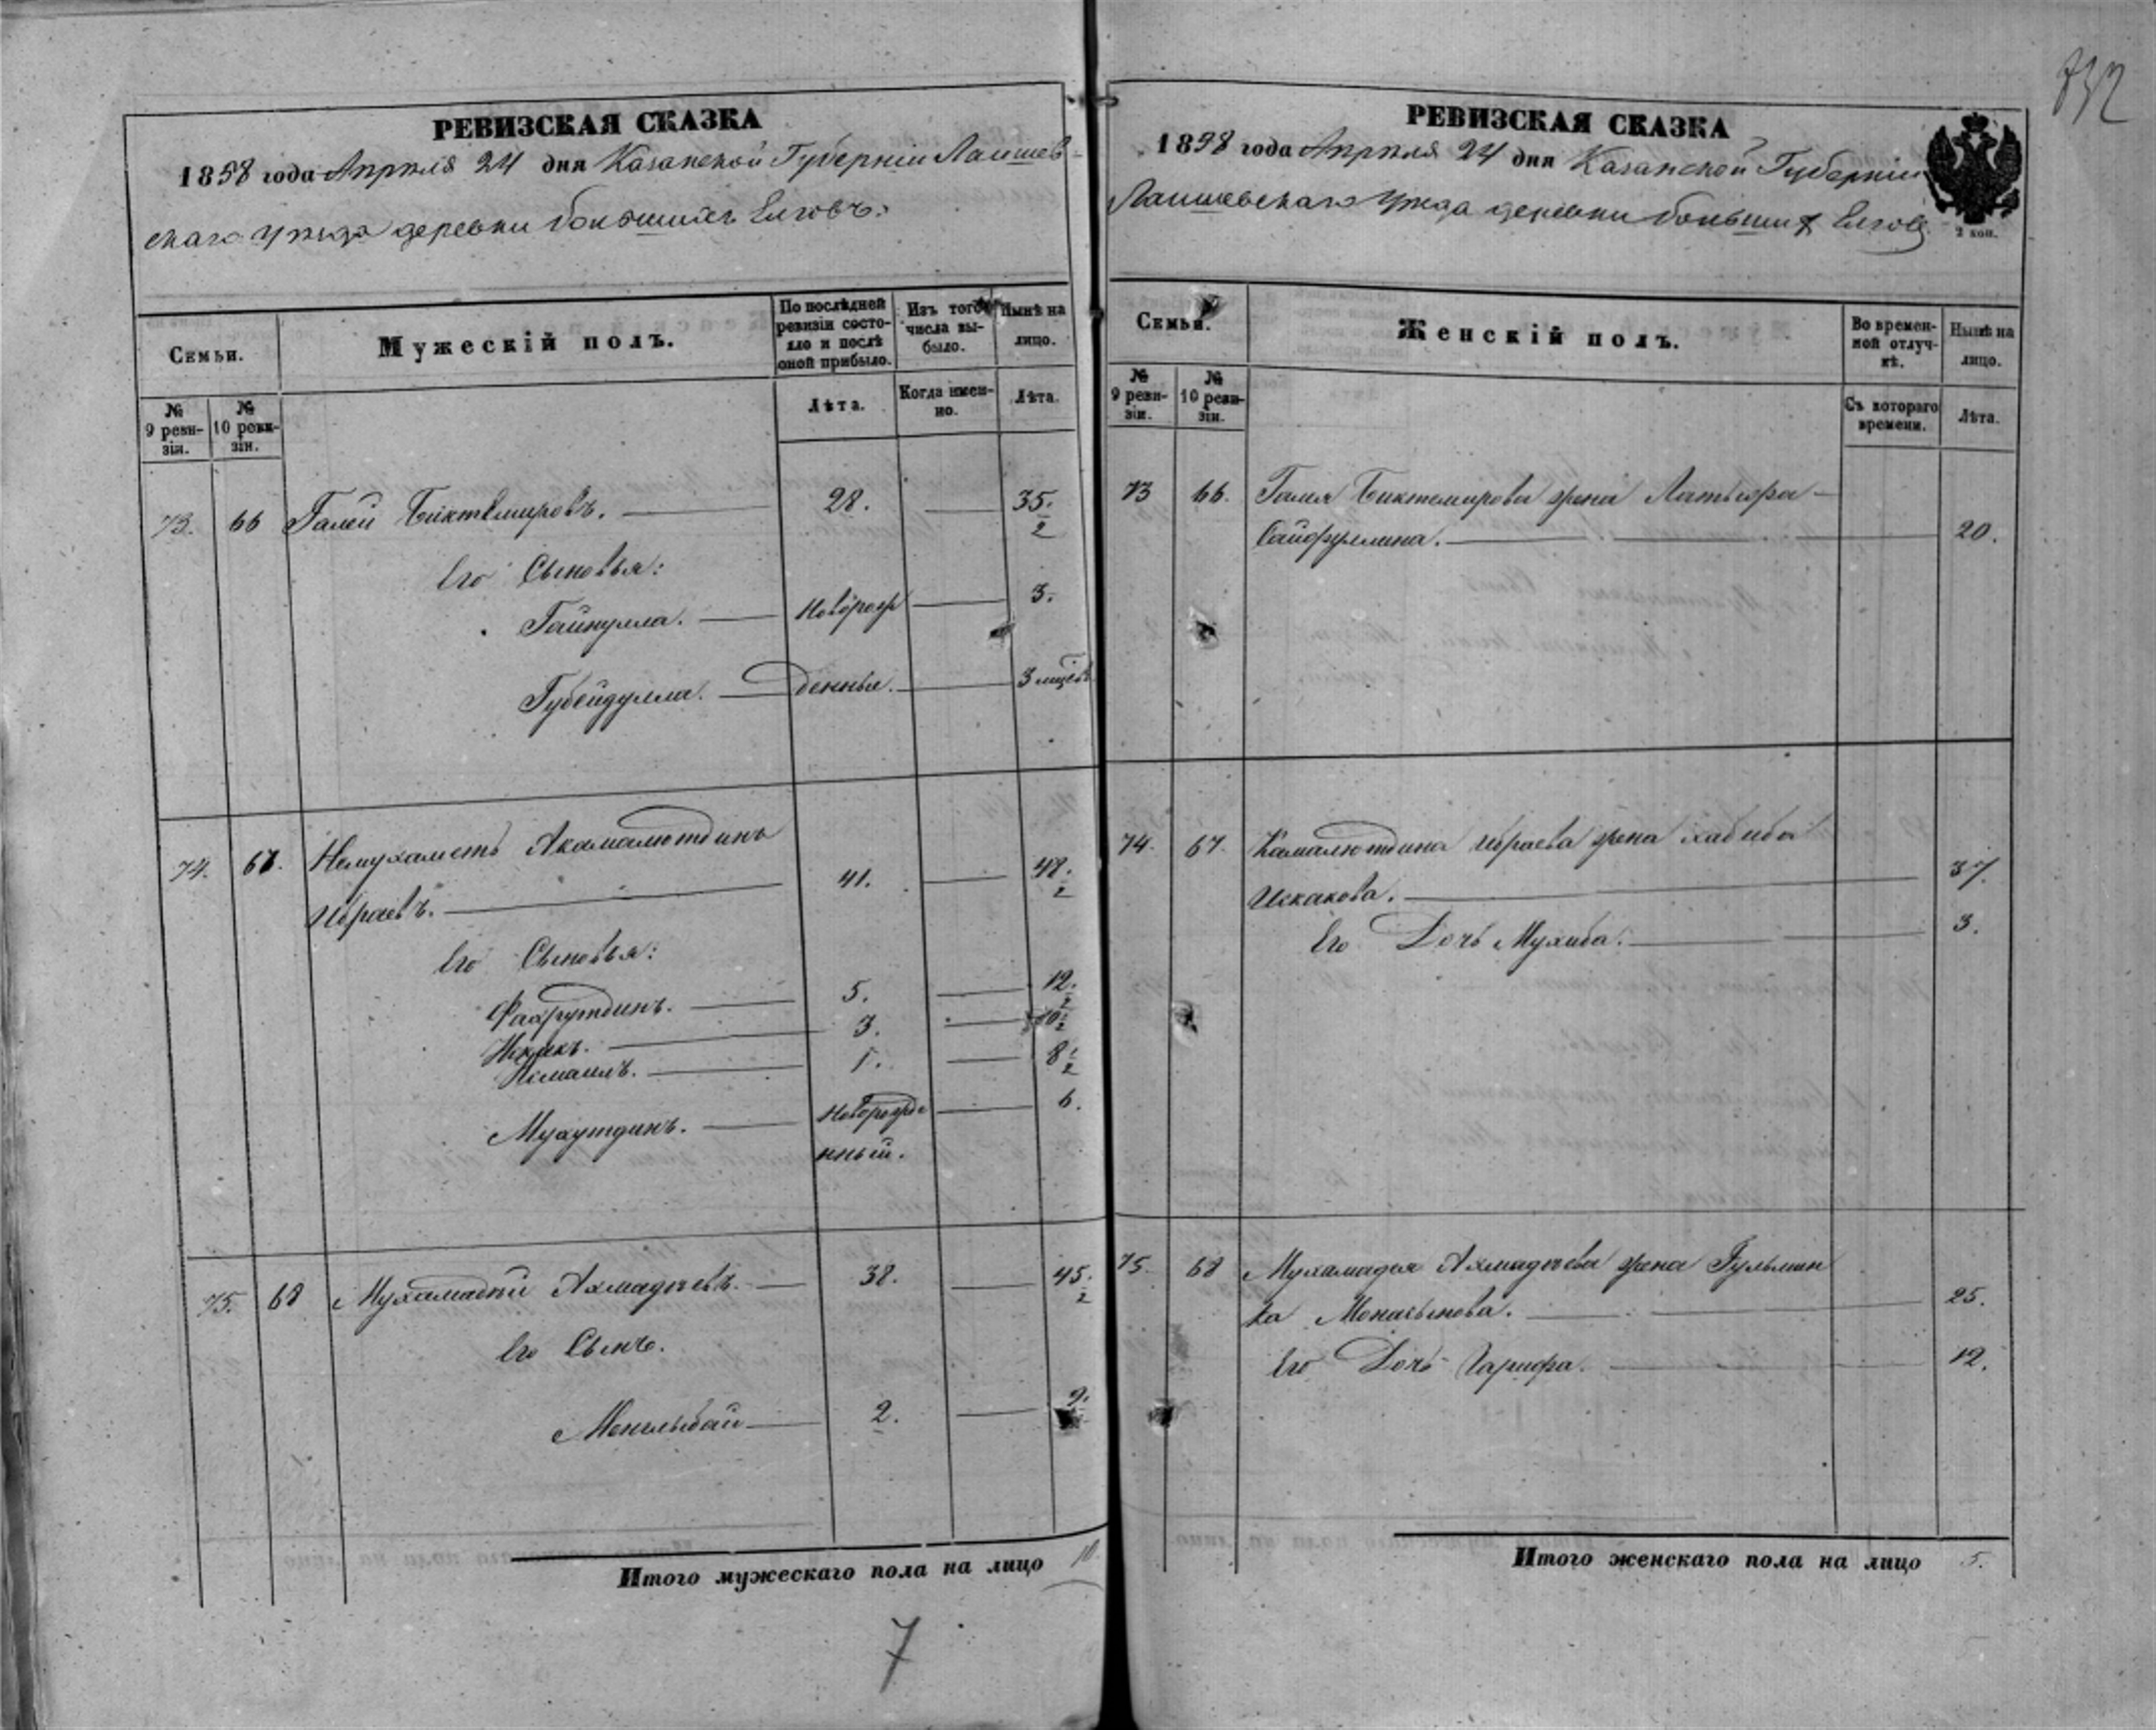 732
РЕВИЗСКАЯ СКАЗКА
1858 года Апрѣля 24 дня Казанской Губерніи Лаишев-
скаго Уѣзда деревни большихъ Елговъ.
Семьи.
№ 9 ревизіи.
№ 10 ревизіи.
Мужескій полъ.
По послѣдней ревизіи состояло и послѣ оной прибыло.
Лѣта.
Изъ того числа выбыло.
Когда именно.
Нынѣ на лицо.
Лѣта.
73. 66 Галей Биктемировъ. 28. 35. 2
Его Сыновья:
Гайнулла. Новорож 3.
Губейдулла. денныя. 3 мцев
74. 67. Немухаметь Акамалютдинъ
Ибраевъ. 41. 48. 2
Его Сыновья:
Фахрутдинъ. 5. 12. 2
Искакъ. 3. 10. 2
Исмаилъ. 1. 8. 2
Мухутдинъ. Новорожде 6.
нный.
75. 68 Мухамадѣй Ахмадѣевъ. 38. 45. 2
Его Сынъ.
Менлыбай 2. 9.
Итого мужескаго пола на лицо 10.
7
РЕВИЗСКАЯ СКАЗКА
1858 года Апрѣля 24 дня Казанской Губерніи
Лаишевскаго Уѣзда деревни большихъ Елговъ
2 коп.
Семьи.
№ 9 ревизіи.
№ 10 ревизіи.
Женскій полъ.
Во временной отлучкѣ.
Съ котораго времени.
Нынѣ на лицо.
Лѣта.
73 66. Галея Биктемирова жена Латыфа
Сайфуллина. 20.
74. 67. Камалютдина Ибраева жена Хабиба
Искакова. 37.
Его Дочь Мухиба. 3.
75. 68 Мухамадѣя Ахмадѣева жена Гульмин
ка 25.
Его Дочь Гарифа. 12.
Итого женскаго пола на лицо 5.